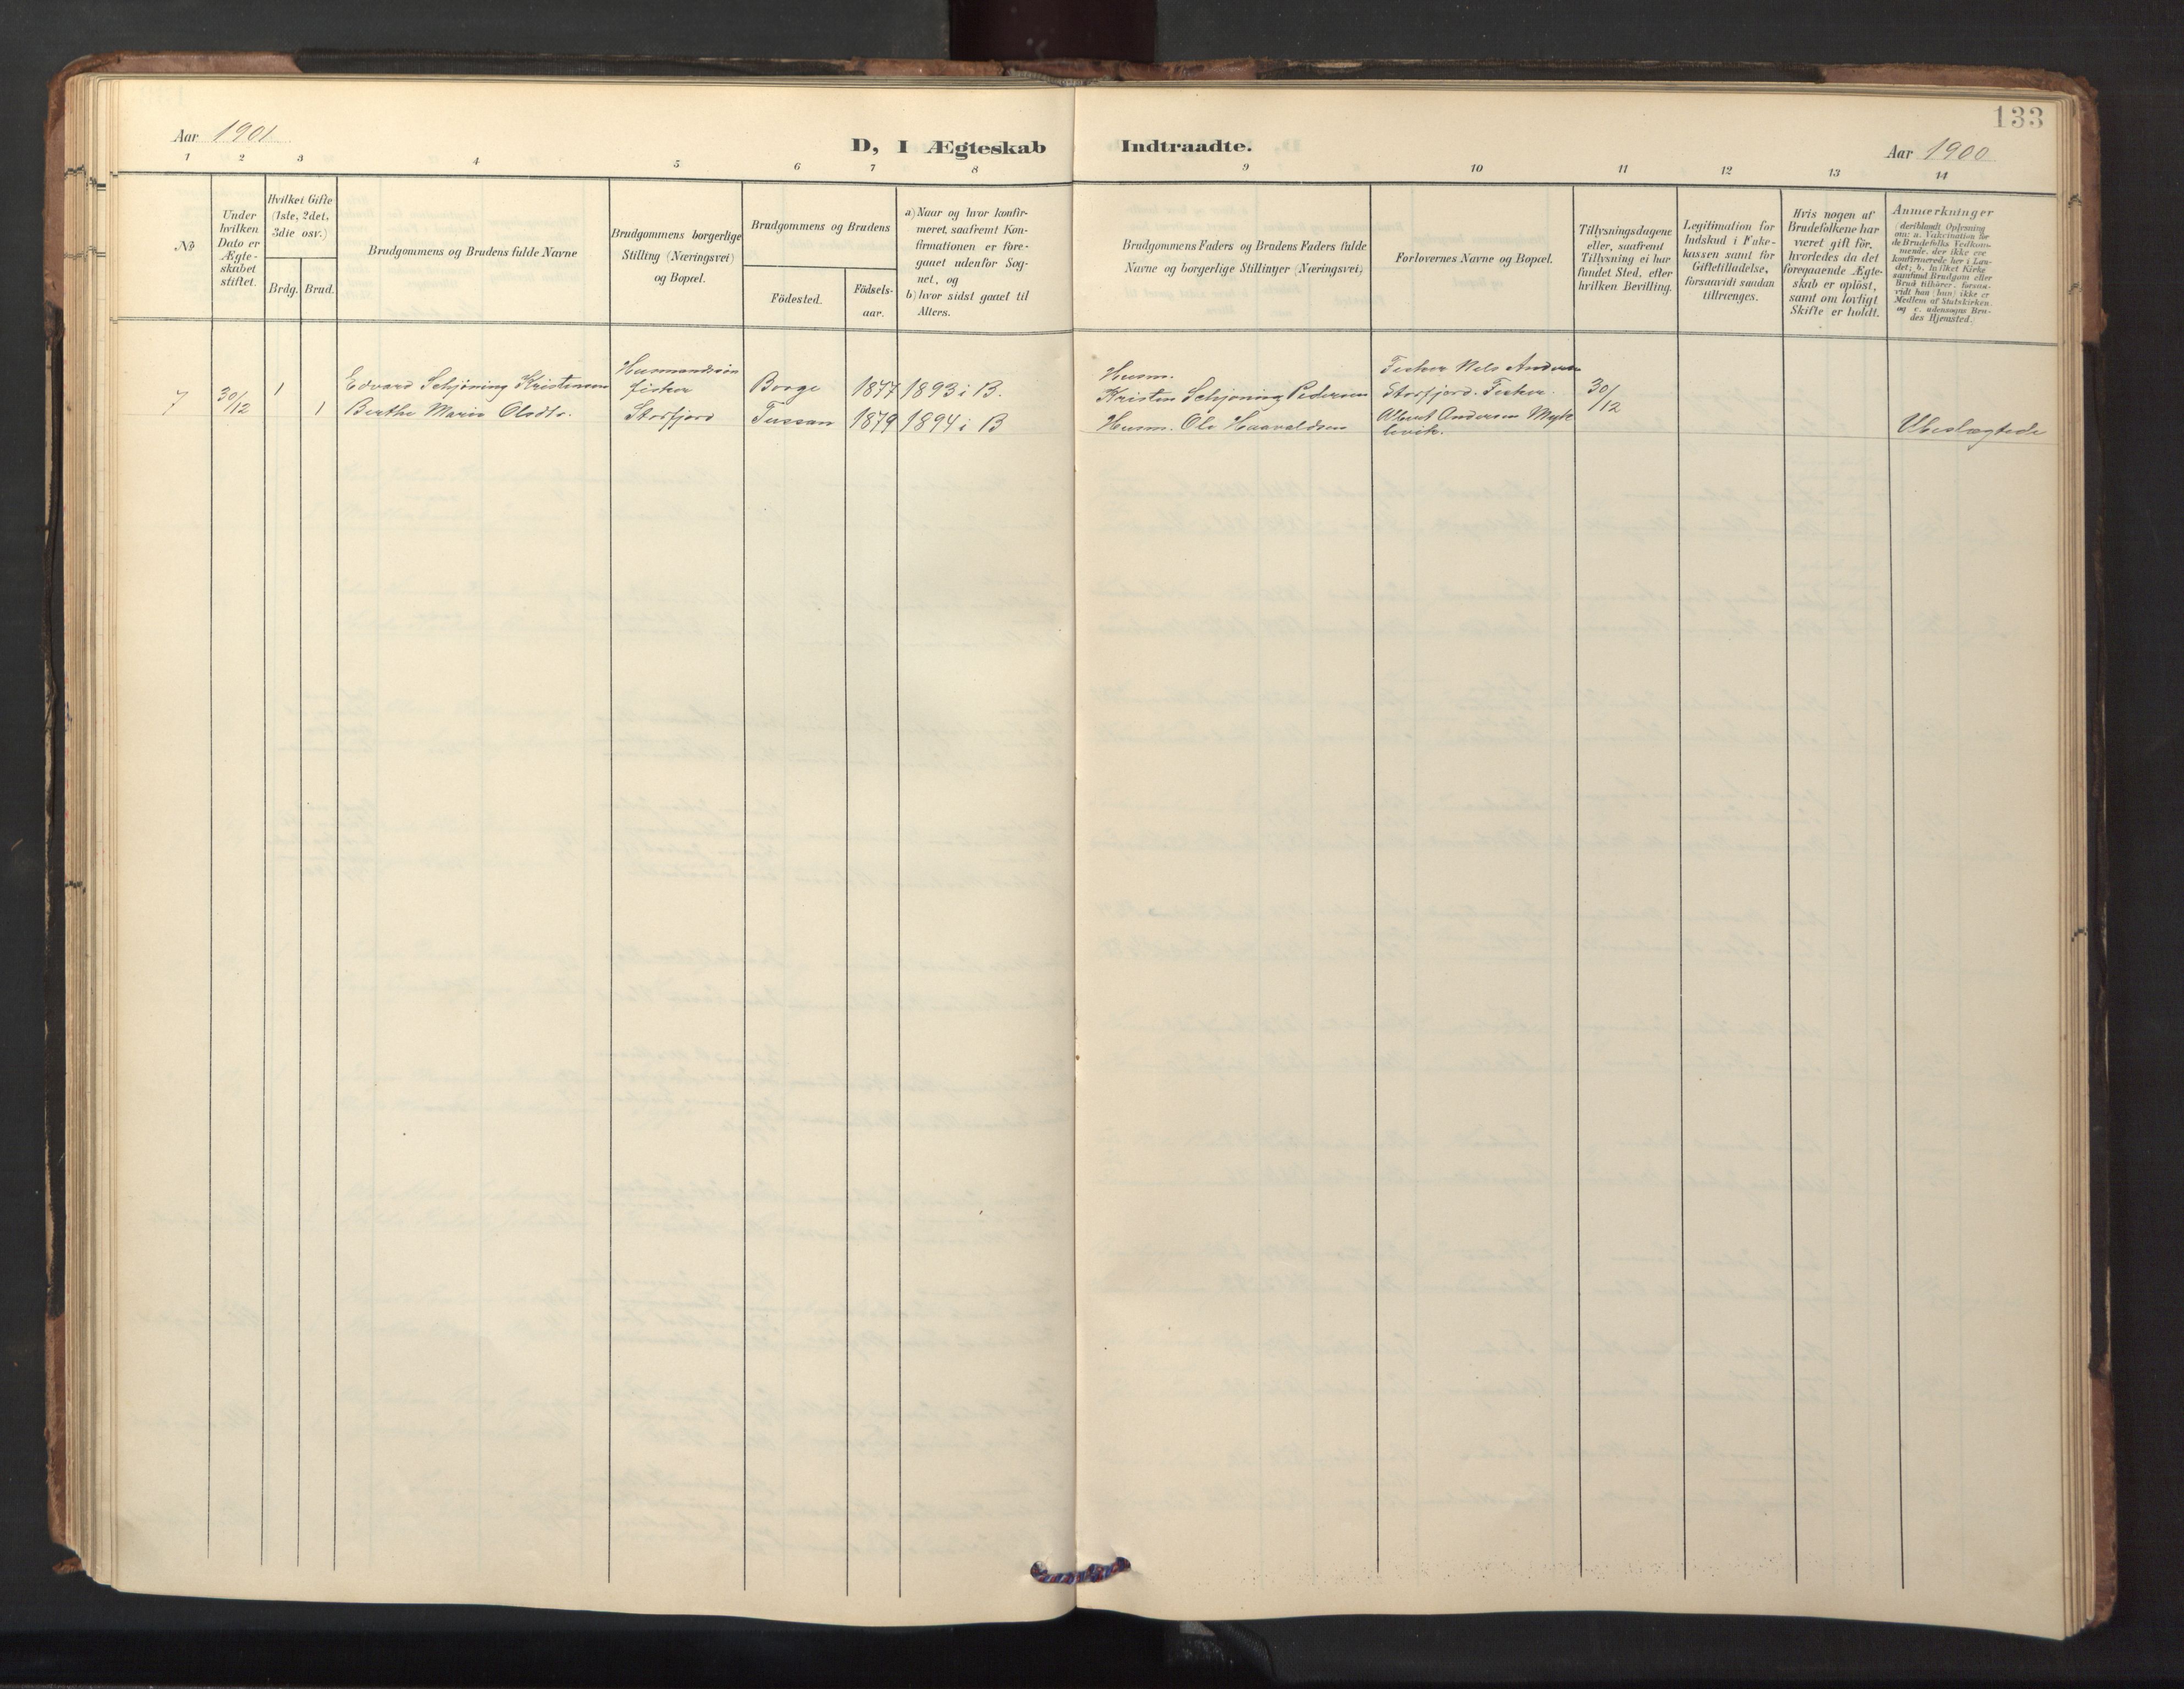 133
Aar 1901
D, I Ægteskab Indtraadte.
Aar 1900
1 2 3 4 5 6 7 8 9 10 11 12 13 14
№
Under
hvilken
Dato er
Ægte-
skabet
stiftet.
Hvilket Gifte
(1ste, 2det,
3die osv.)
Brdg. Brud.
Brudgommens og Brudens fulde Navne
Brudgommens borgerlige
Stilling (Næringsvei)
og Bopæl.
Brudgommens og Brudens
Födested.
Födsels-
aar.
a) Naar og hvor konfir-
meret, saafremt Kon-
firmationen er fore-
gaaet udenfor Sog-
net, og
b) hvor sidst gaaet til
Alters.
Brudgommens Faders og Brudens Faders fulde
Navne og borgerlige Stillinger (Næringsvei)
Forlovernes Navne og Bopæl.
Tillysningsdagene
eller, saafremt
Tillysning ei har
fundet Sted, efter
hvilken Bevilling.
Legitimation for
Indskud i Enke-
kassen samt for
Giftetilladelse,
forsaavidt saadan
tiltrænges.
Hvis nogen af
Brudefolkene har
været gift för,
hvorledes da det
foregaaende Ægte-
skab er oplöst,
samt om lovligt
Skifte er holdt.
Anmærkninger
(deriblandt Oplysning
om: a. Vakcination for
de Brudefolks Vedkom-
mende, der ikke ere
konfirmerede her i Lan-
det; b. hvilket Kirke
samfund Brudgom eller
Brud tilhörer, forsaa-
vidt han (hun) ikke er
Medlem af Statskirken.
og c. udensogns Bru-
des Hjemsted.)
7 30/12 1 Edvard Schjöning Kristensen
1 Berthe Marie Olsdtr.
Husmandssön
fisker
Storfjord
Borge 1877 1893 i B.
1879 1894 i B
Husm.
Kristen Schjöning Pedersen
Husm. Ole Haavaldsen
Fisker Nels Andersen
Storfjord. Fisker
Albert Andersen Mykle
bvik.
30/12
Ubeslægtede